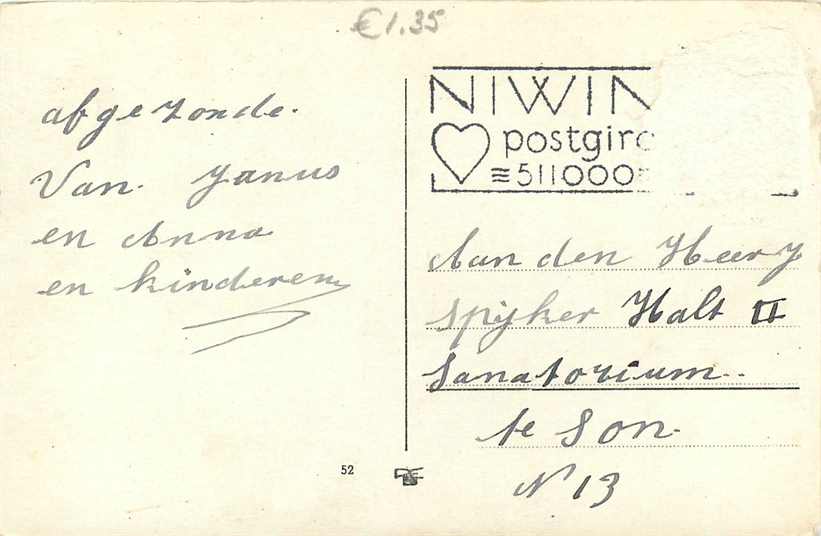 €1.35
afgezonde.
Van. Janus
en Anna
en kinderen
52
NIWIN
postgiro
511000
Aan den Heer J
Spijker Halt II
Sanatorium..
te Son.
N 13